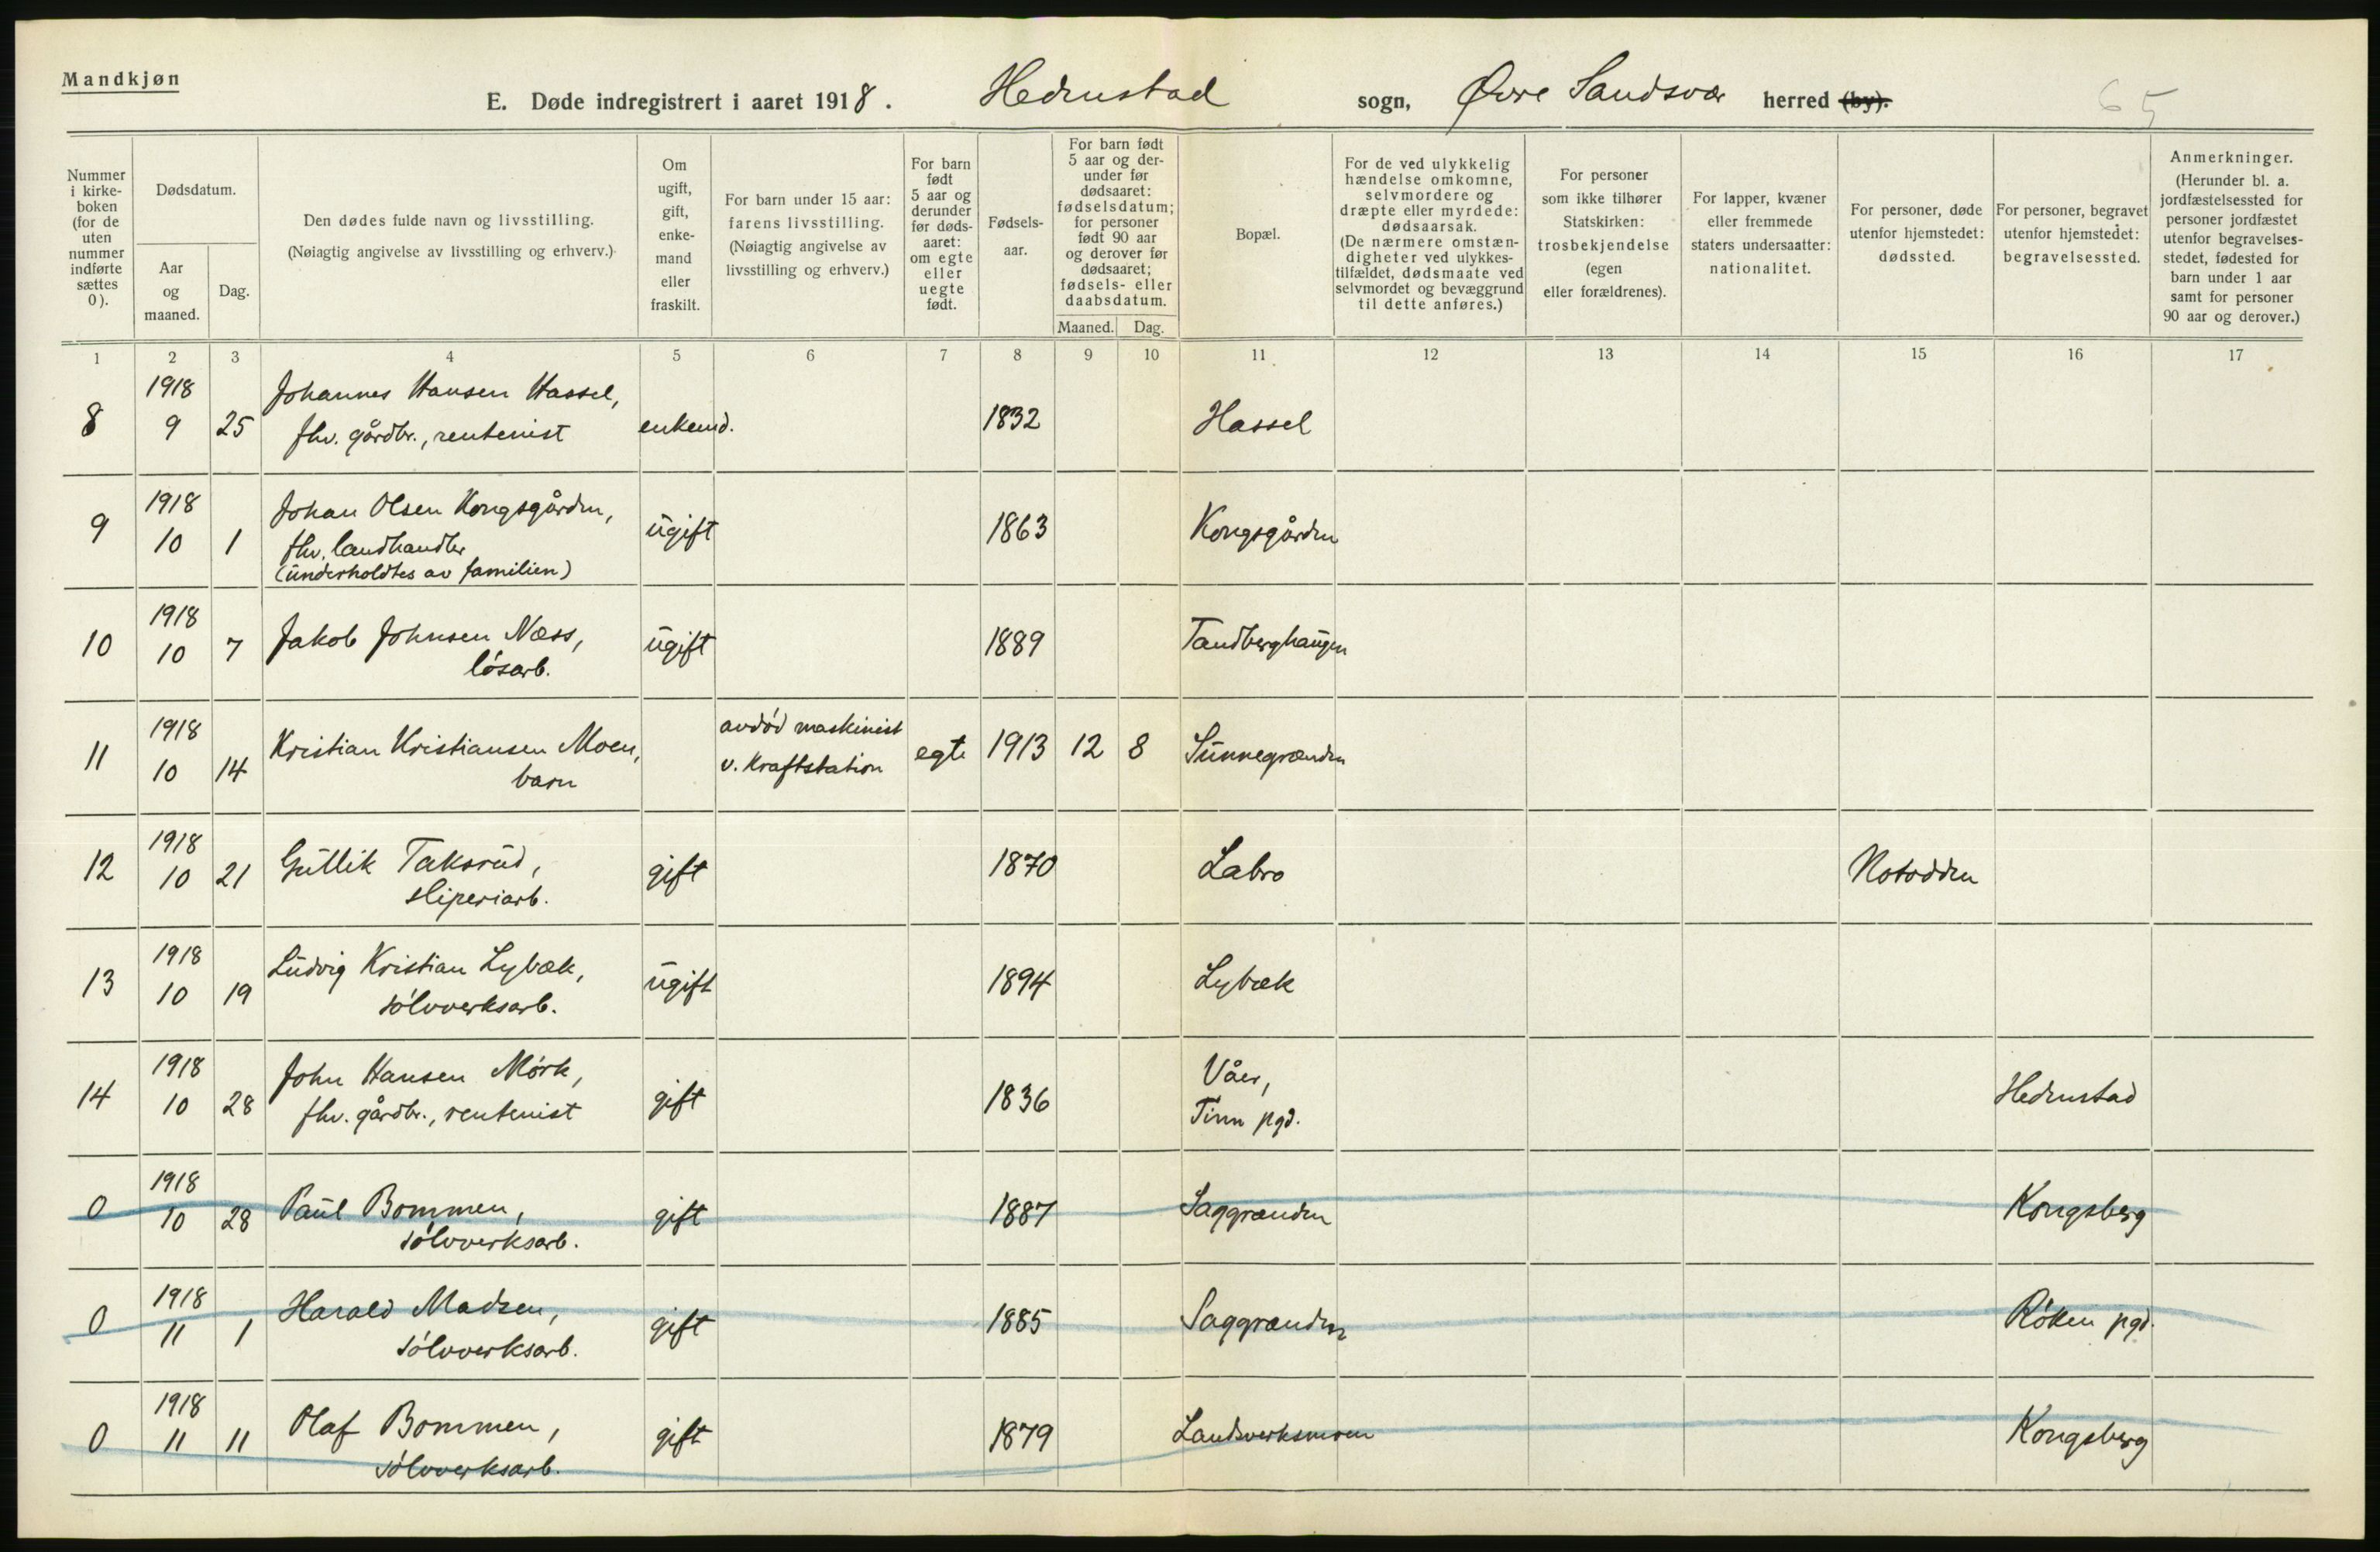 Mandkjøn
E. Døde indregistrert i aaret 1918. Hedenstad sogn, Øvre Sandsvær herred (by).
65
Nummer i kirke-boken (for de uten nummer indførte sættes 0).
Dødsdatum.
Aar og maaned.
Dag.
Den dødes fulde navn og livsstilling.
(Nøiagtig angivelse av livsstilling og erhverv.)
Om ugift, gift, enke-mand eller fraskilt.
For barn under 15 aar: farens livsstilling. (Nøiagtig angivelse av livsstilling og erhverv.)
For barn født 5 aar og derunder før døds-aaret: om egte eller uegte født.
Fødsels-aar.
For barn født 5 aar og der-under før dødsaaret: fødselsdatum; for personer født 90 aar og derover før dødsaaret; fødsels- eller daabsdatum.
Maaned. Dag.
Bopæl.
For de ved ulykkelig hændelse omkomne, selvmordere og dræpte eller myrdede: dødsaarsak. (De nærmere omstæn-digheter ved ulykkes-tilfældet, dødsmaate ved selvmordet og bevæggrund til dette anføres.)
For personer som ikke tilhører Statskirken: trosbekjendelse (egen eller forældrenes).
For lapper, kvæner eller fremmede staters undersaatter: nationalitet.
For personer, døde utenfor hjemstedet: dødssted.
For personer, begravet utenfor hjemstedet: begravelsessted.
Anmerkninger. (Herunder bl. a. jordfæstelsessted for personer jordfæstet utenfor begravelses-stedet, fødested for barn under 1 aar samt for personer 90 aar og derover.)
1 2 3 4 5 6 7 8 9 10 11 12 13 14 15 16 17
1918 Johannes Hansen Hassel,
8 9 25 fhv. gårdbr., rentenist enkemd. 1832 Hassel
1918 Johan Olsen Kongsgården,
9 10 1 fhv. landhandler ugift 1863 Kongsgården
(underholdtes av familien)
1918
10 10 7 Jakob Johnsen Næss, ugift 1889 Tandberghaugen
løsarb.
1918 avdød maskinist
11 10 14 Kristian Kristiansen Moen, v. Kraftstation egte 1913 12 8 Sunnegrænden
barn
1918
12 10 21 Gullik Taksrud, gift 1870 Labro Notodden
sliperiarb.
1918
13 10 19 Ludvig Kristian Lybæk, ugift 1894 Lybæk
sølvverksarb.
1918 John Hansen Mørk, Våer,
14 10 28 fhv. gårdbr., rentenist gift 1836 Tinn pgd. Hedenstad
1918
0 10 28 Paul Bommen, gift 1887 Saggrenden Kongsberg
sølvverksarb.
1918
0 11 1 Harald Madsen, gift 1885 Saggrænden Røken pgd.
sølvverksarb.
1918
0 11 11 Olaf Bommen, gift 1879 Landsverksmoen Kongsberg
sølvverksarb.